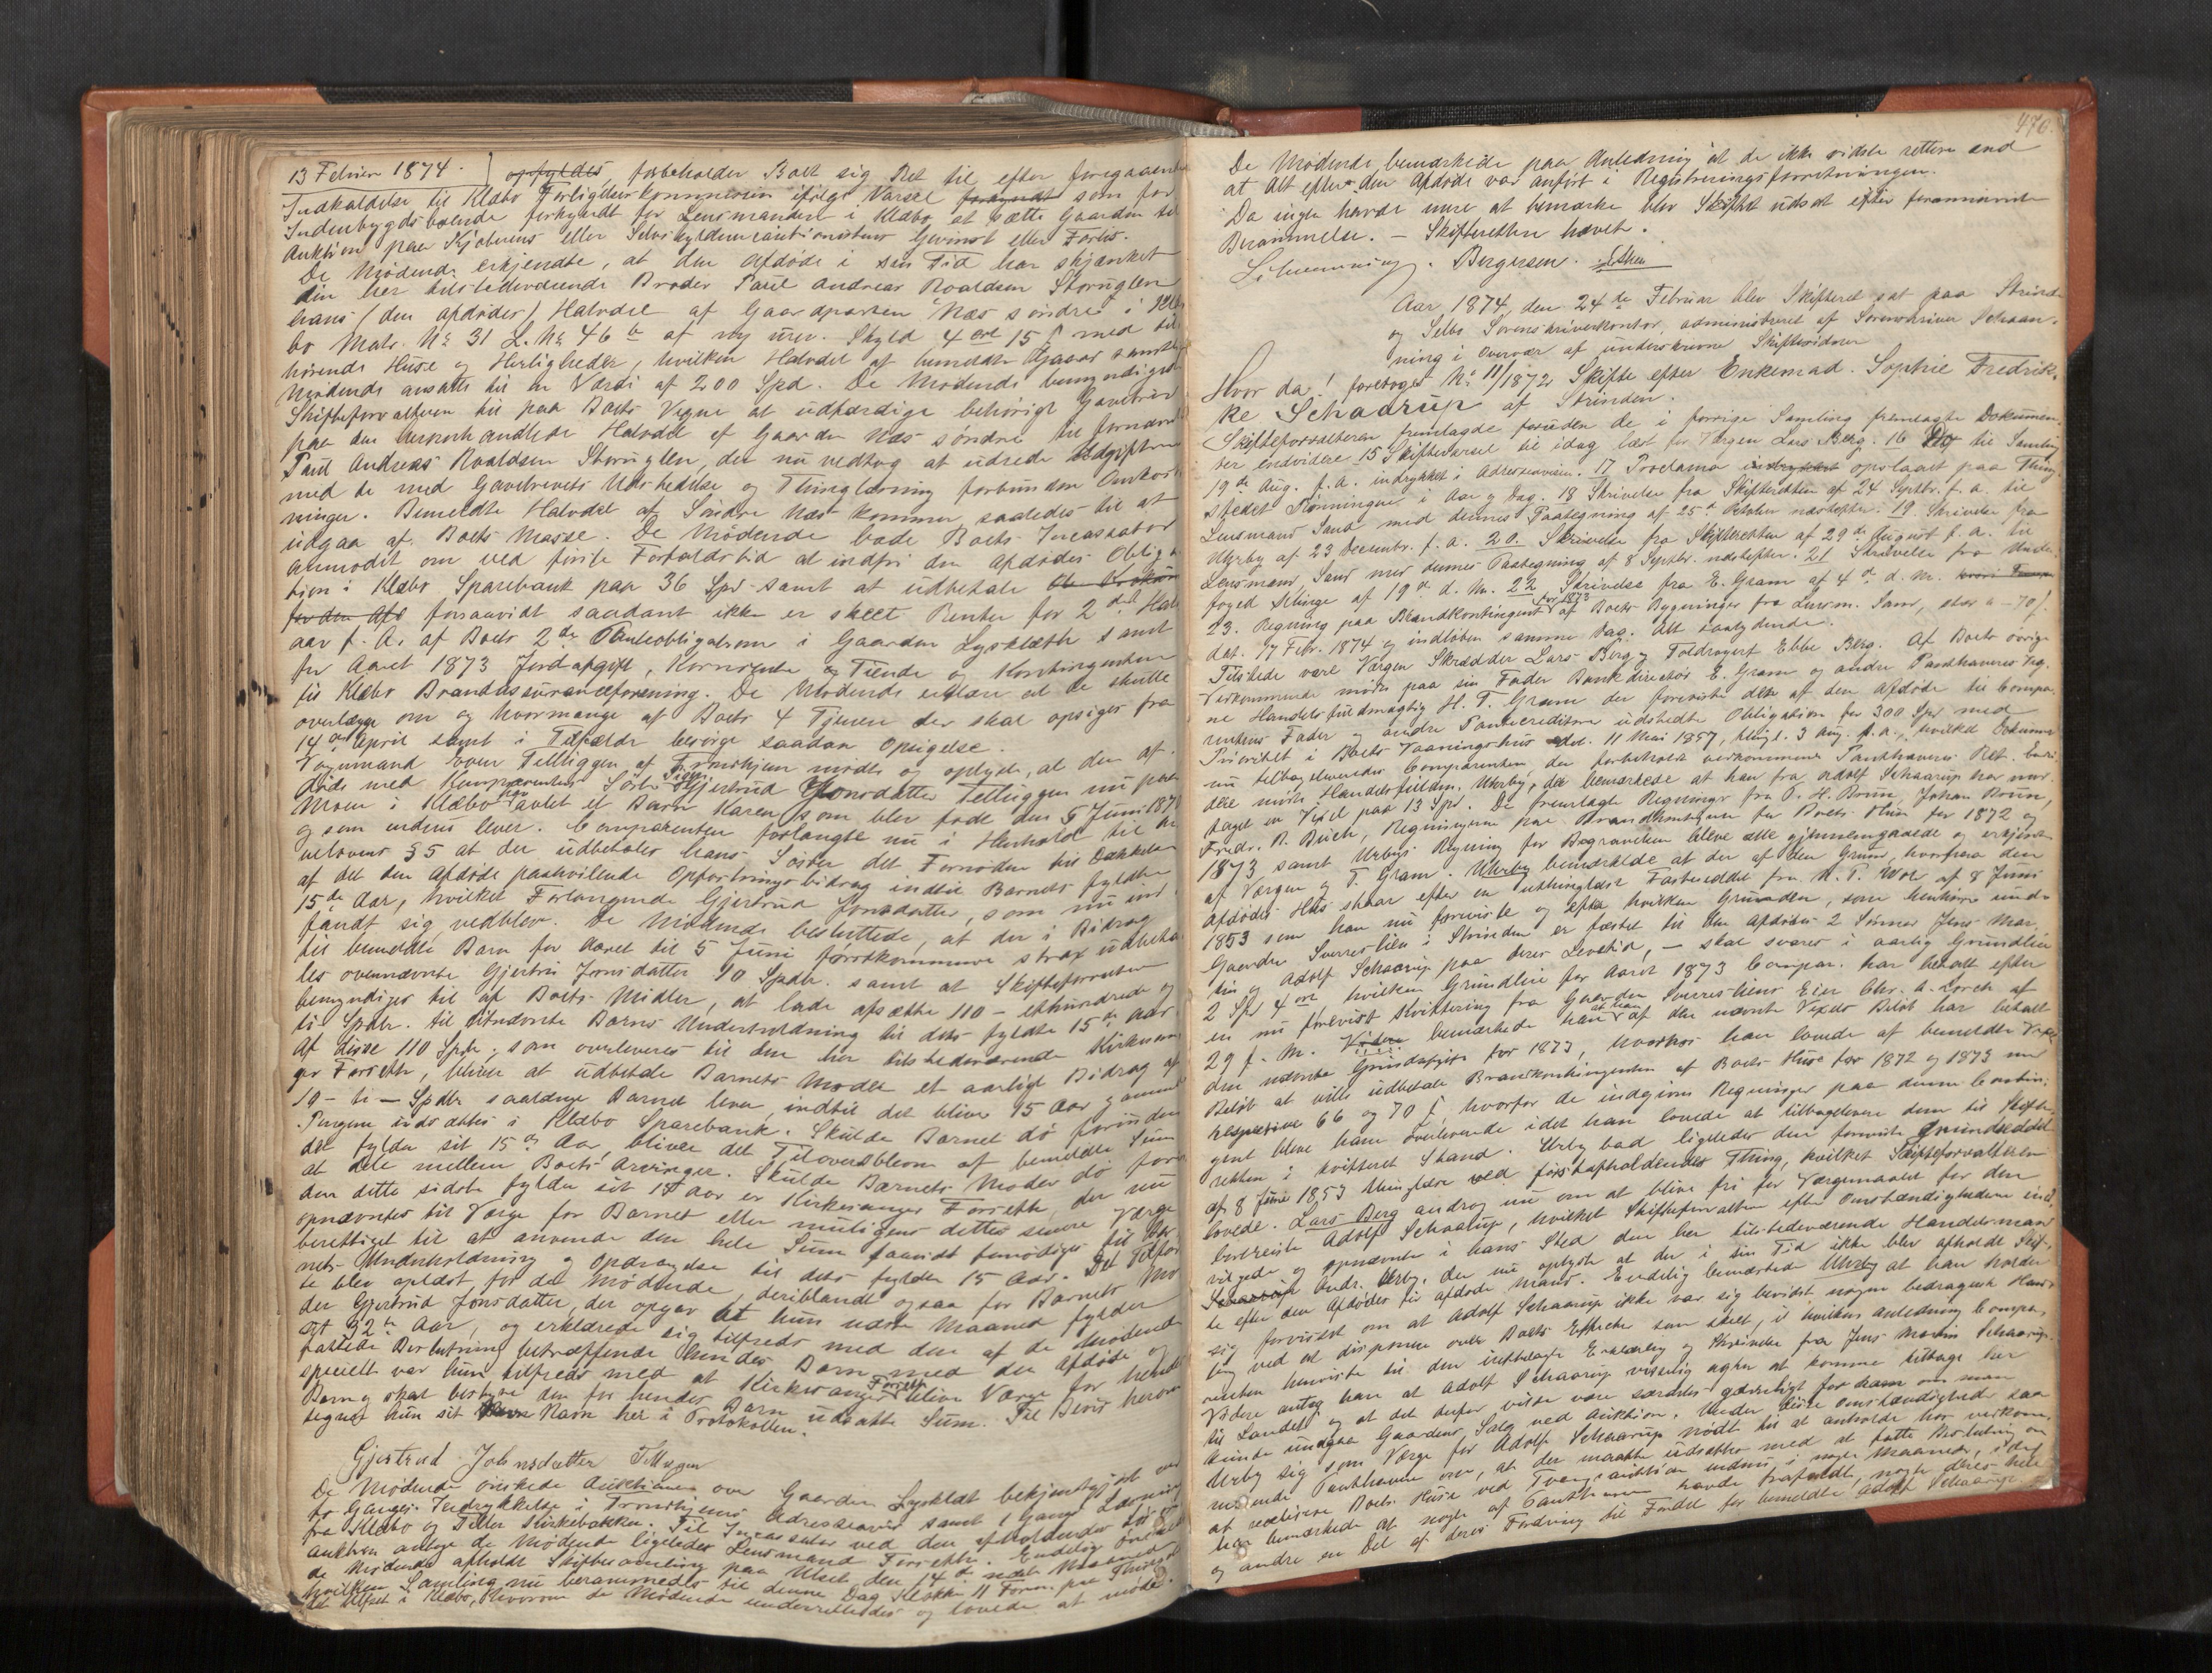 13 Februar 1874. opfyldes, forbeholder Boet sig Ret til efter foregaaende
Indkaldelse til Klæbo Forligelseskommission ifølge Varsel forkyndt som for
Indenbygdsboende forkyndt for Lensmanden i Klæbo at sætte Gaarden til
Auktion paa Kjøberens eller Selvskyldnercautionistens Gevinst eller Forlis.
De Mødende erkjendte, at den Afdøde i sin Tid har skjænket
sin her tilstedeværende Broder Paul Andreas Roaldsen Storuglen
hans (den afdødes) Halvdel af Gaardparten Næs søndre i Klæ
bo Matr. No 31 L. No 46 b af ny urev. Skyld 4 ort 15 ß med til
hørende Huse og Herligheder, hvilken Halvdel af bemeldte Gaard samtl.
Mødende ansatte til en Værdi af 200 Spd. De Mødende bemyndigede
Skifteforvalteren til paa Boets Vegne at udfærdige behørigt Gavebrev
paa den omhandlede Halvdel af Gaarden Næs søndre til fornævnte
Paul Andreas Roaldsen Storuglen, der nu vedtog at udrede Udgifterne
med de med Gavebrevets Udstedelse og Thinglæsning forbundne Omkost
ninger. Bemeldte Halvdel af Søndre Næs kommer saaledes til at
udgaa af Boets Masse. De Mødende bade Boets Incassator
anmodet om ved første Forfaldstid at indfri den Afdødes Obliga
tion i Klæbo Sparebank paa 36 Spd samt at udbetale
for den Afd forsaavidt saadant ikke er skeet Renter for 2det Halv
aar f. A. af Boets 2den Panteobligation i Gaarden Lysklæth samt
for Aaret 1873 Jordafgift, Kornrente og Tiende og Kontingenten
til Klæbo Brandassuranceforening. De Mødende erklære at de skulle
overlægge om og hvormange af Boets 4 Tjenere der skal opsiges fra
14de April samt i Tilfælde besørge saadan Opsigelse.
Togmand Sven Telluggen af Trondhjem mødte og oplyste, at den af
døde med Komparentens Søster Pige Gjertrud Jonsdatter Tellüggen nu paa
Moen i Klæbo har avlet et Barn Karen, som blev født den 5 Juni 187
og som endnu lever. Comparenten forlangte nu i Henhold til Ar
velovens § 5 at der udbetales hans Søster det Fornødne til Dækkelse
af det den afdøde paahvilende Opfostringsbidrag indtil Barnets fyldte
15de Aar, hvilket Forlangende Gjertrud Jonsdatter, som nu ind
fandt sig, vedblev. De Mødende besluttede, at der i Bidrag
til bemeldte Barn for Aaret til 5 Juni førstkommende strax udbeta
les ovennævnte Gjertru Jonsdatter 10 Spdlr. samt at Skifteforvalteren
bemyndiges til af Boets Midler, at lade afsætte 110 - ethundrede og
ti Spdlr. til fornævnte Barns Underholdning til dets fyldte 15de Aar.
Af disse 110 Spdlr., som overleveres til den her tilstedeværende Kirkesan
ger Forseth, bliver at udbetale Barnets Moder et aarligt Bidrag af
10 - ti - Spdlr saalænge Barnet lever, indtil det bliver 15 Aar gammel
Pengene indsættes i Klæbo Sparebank. Skulde Barnet dø forinden
det fylder sit 15de Aar bliver det Tiloversblevne af bemeldte Sum
at dele mellem Boets Arvinger. Skulde Barnets Moder dø forin
den dette sidste fylder sit 15 Aar er Kirkesanger Forseth, der nu
opnævntes til Værge for Barnet eller muligens dettes senere Værge
berettiget til at anvende den hele Sum saavidt fornødiges til Bar
nets Underholdning og Opdragelse til dets fyldte 15 Aar. Det Tilfør
te blev oplæst for de Mødende, deriblandt ogsaa for Barnets Mo
der Gjertrud Jonsdatter, der opgav at hun næste Maaned fylder
sit 32te Aar, og erklærede sig tilfreds med den af de Mødende
fattede Beslutning betræffende hendes Barn med den Afdøde og
specielt var hun tilfreds med at Kirkesanger Forseth bliver Værge for hendes
Barn og skal bestyre den for hendes Barn udsatte Sum. Til Bevis herom
tegnet hun sit Navn her i Protokollen.
Gjertrud Johnsdatter Tellugen
De Mødende ønskede Auktionen over Gaarden Lysklæt bekjentgjort ved
to Ganges Indrykkelse i Trondhjems Adresseavis samt 1 Gangs Læsning
fra Klæbo og Tiller Kirkebakke. Til Incassator ved den afholdendes
Auktion antoge de Mødende ligeledes Lensmand Forseth. Endelig ønskede
de Mødende afholdt Skiftesamling paa Ulset den 14de næste Maaned
hvilken Samling nu berammedes til denne Dag Klokken 11 Form. paa
det Ulset i Klæbo, hvorom de Mødende underrettedes og lovede at møde.
470.
De Mødende bemærkede paa Anledning at de ikke vidste rettere end
at Alt efter den Afdøde var anført i Registreringsforretningen.
Da ingen havde mere at bemærke blev Skiftet udsat efter forannævnte
Berammelse. - Skifteretten hævet.
Bergersen.
Aar 1874, den 24de Februar blev Skifteret sat paa Strinde
og Selbo Sorenskriverkontor, administreret af Sorenskriver Schaan
ning i Overvær af underskrevne Skiftevidner
Hvor da! foretoges No 11/1872 Skifte efter Enkemad. Sophie Fredrik-
ke Schaarup af Strinden.
Skifteforvalteren fremlagde foruden de i forrige Samling fremlagte Dokumen
ter endvidere 15 Skiftevarsel til idag læst for Værgen Lars Berg. 16 Do til Samling
19de Aug. f. A. indrykket i Adresseavisen. 17 Proclama indrykket opslaaet paa Thing
stedet Rønningen i Aar og Dag. 18 Skrivelse fra Skifteretten af 24 Septbr. f. A. til
Lensmand Sand med dennes Paategning af 25de Oktober næstefter. 19 Skrivelse fra
Uhrby af 23 Decembr. f. A. 20. Skrivelse fra Skifteretten af 29de August f. A. til
Lensmand Sand med dennes Paategning af 8 Septbr. næstefter. 21 Skrivelse fra Under
foged Selinge af 19de d. M. 22 Skrivelse fra E. Gram af 4de d. M.
23. Regning paa Brandkontingent for 1873 af Boets Bygninger fra Lensm. Sand, stor a - 70 ß.
dat. 17 Febr. 1874 og indløben samme Dag. Alt saalydende.
Tilstede vare Værgen Skrædder Lars Berg og Toldroyert Ebbe Berg. Af Boets øvrige
Vedkommende mødte paa sin Fader Bankdirektør E. Gram og andre Panthaveres Veg
ne Handelsfuldmægtig H. T. Gram der foreviste den af den Afdøde til Compa-
rentens Fader og andre Pantecreditorer udstedte Obligation for 300 Spd med
Prioritet i Boets Vaaningshus dat. 11 Mai 1857, thingl. 3 Aug. f. A., hvilket Dokument
nu tilbageleveredes Comparenten der forbeholdt vedkommende Panthaveres Ret. Ende
lig mødte Handelsfuldm. Uhrby, der bemærkede at han fra Adolf Schaarup har mod
taget en Vexel paa 13 Spd. De fremlagte Regninger fra P. H. Brun, Johan Brun,
Fredr. R. Buch, Regningerne paa Brandkontingent for Boets Huse for 1872 og
1873 samt Uhrbys Regning for Begravelsen bleve alle gjennemgaaede og erkjendt
af Værgen og T. Gram. Uhrby bemærkede at der af den Grund, hvorpaa den
Afdødes Hus staar efter en uthinglæst Fæsteseddel fra af 8 Juni
1853 som han nu foreviste og efter hvilken Grunden, som henhører under
Gaarden Sverreslien i Strinden er fæstet til den afdødes 2 Sønner Jens Mar-
tin og Adolf Schaarup paa deres Levetid, - skal svares i aarlig Grundleie
2 Spd 4 ort hvilken Grundleie for Aaret 1873 Compar. har betalt efter
en nu forevist Kvittering fra Gaarden Sverresliens Eier Chr. A. Lorck af
29 f. M. Videre bemærkede han at han af den nævnte Vexels Beløb har betalt
den nævnte Grundafgift for 1873, hvorhos han lovede af bemeldte Vexels
Beløb at ville udbetale Brandkontingenten af Boets Huse for 1872 og 1873 med
respektive 66 og 70 ß, hvorfor de indgivne Regninger paa denne Contin-
gent bleve ham overleverede idet han lovede at tilbagelevere dem til Skifte-
retten i kvitteret Stand. Uhrby bad ligeledes den forevste Grundseddel
af 8 Juni 1853 thinglæse ved førstafholdendes Thing, hvilket Skifteforvalteren
lovede. Lars Berg androg nu om at blive fri for Værgemaalet for den
bortreiste Adolf Schaarup, hvilket Skifteforvalteren efter Omstændighederne ind
vilgede og opnævnte i hans Sted den her tilstedeværende Handelsmand
Schaarup Andr. Uhrby, der nu oplyste at der i sin Tid ikke blev afholdt Skif-
te efter den Afdødes før afdøde Mand. Endelig bemærkede Uhrby at han holder
sig forvisset om at Adolf Schaarup ikke var sig bevidst nogen bedragersk Hand-
ling ved at disponere over Boets Effekter som skeet, i hvilken Anledning Compa-
renten henviste til den indbelagte Erklæring og Skrivelse fra Jens Martin Schaarup.
Videre antog han at Adolf Schaarup visselig agter at komme tilbage her
til Landet og at det derfor vilde være særdeles gavnligt for ham om man
kunde undgaa Gaardens Salg ved Auktion. Under disse Omstændigheder saa
Uhrby sig som Værge for Adolf Schaarup nødt til at anholde hos vedkom-
mende Panthavere om, at der maatte udsættes med at fatte Beslutning om
at realisere Boets Huse ved Tvangsauktion endnu i nogle Maaneder, idet
han bemærkede at nogle af Panthaverne havde frafaldt, nogle deres hele
og andre en Del af deres Fordring til Fordel for bemeldte Adolf Schaarup.